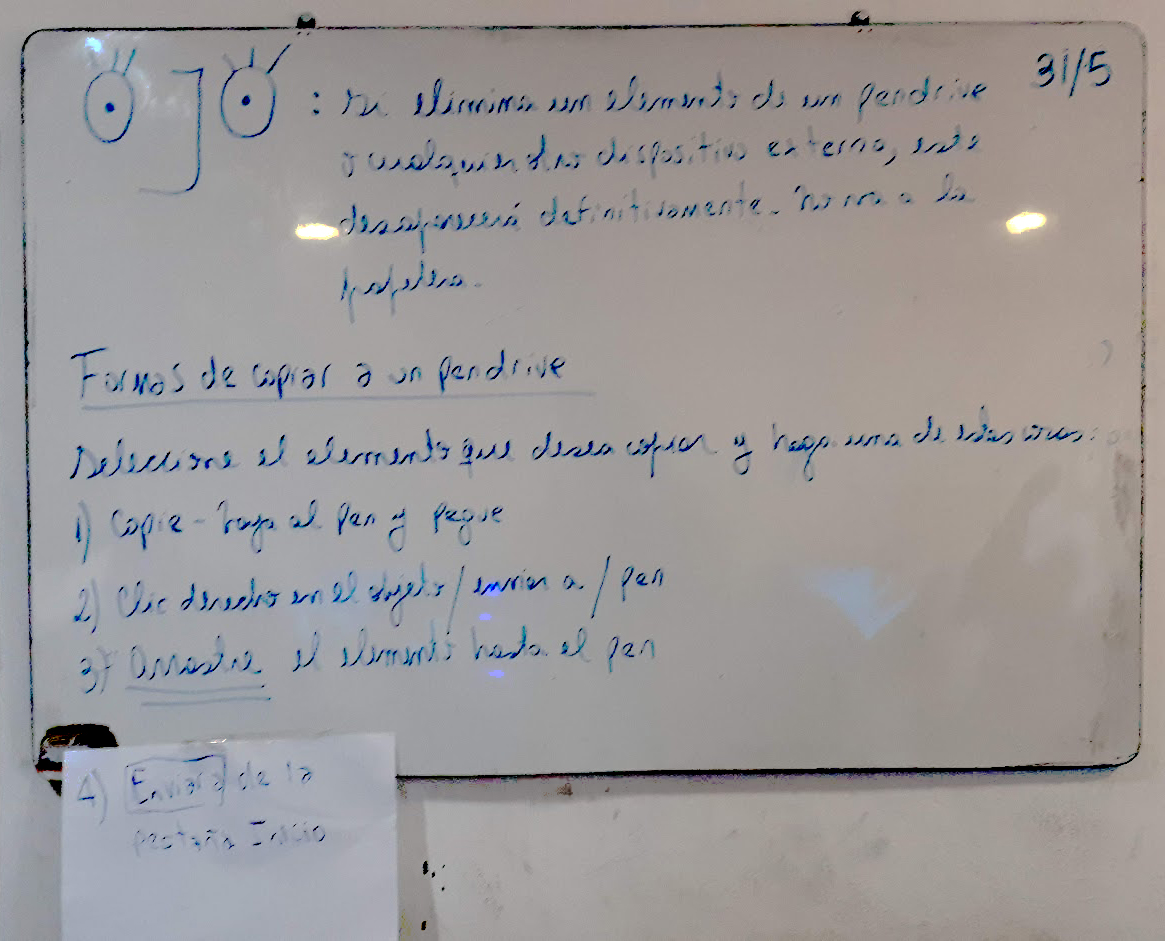 31/5
OJO : si elimina un elemento de un pendrive
o cualquier otro dispositivo externo, este
desaparecerá definitivamente. No va a la
papelera.
Formas de copiar a un pendrive
Seleccione el elemento que desea copiar y haga una de estas cosas:
1) Copie - vaya al pen y pegue
2) Clic derecho en el objeto / enviar a / pen
3) Arrastre el elemento hasta el pen
4) Enviar a de la
pestaña Inicio